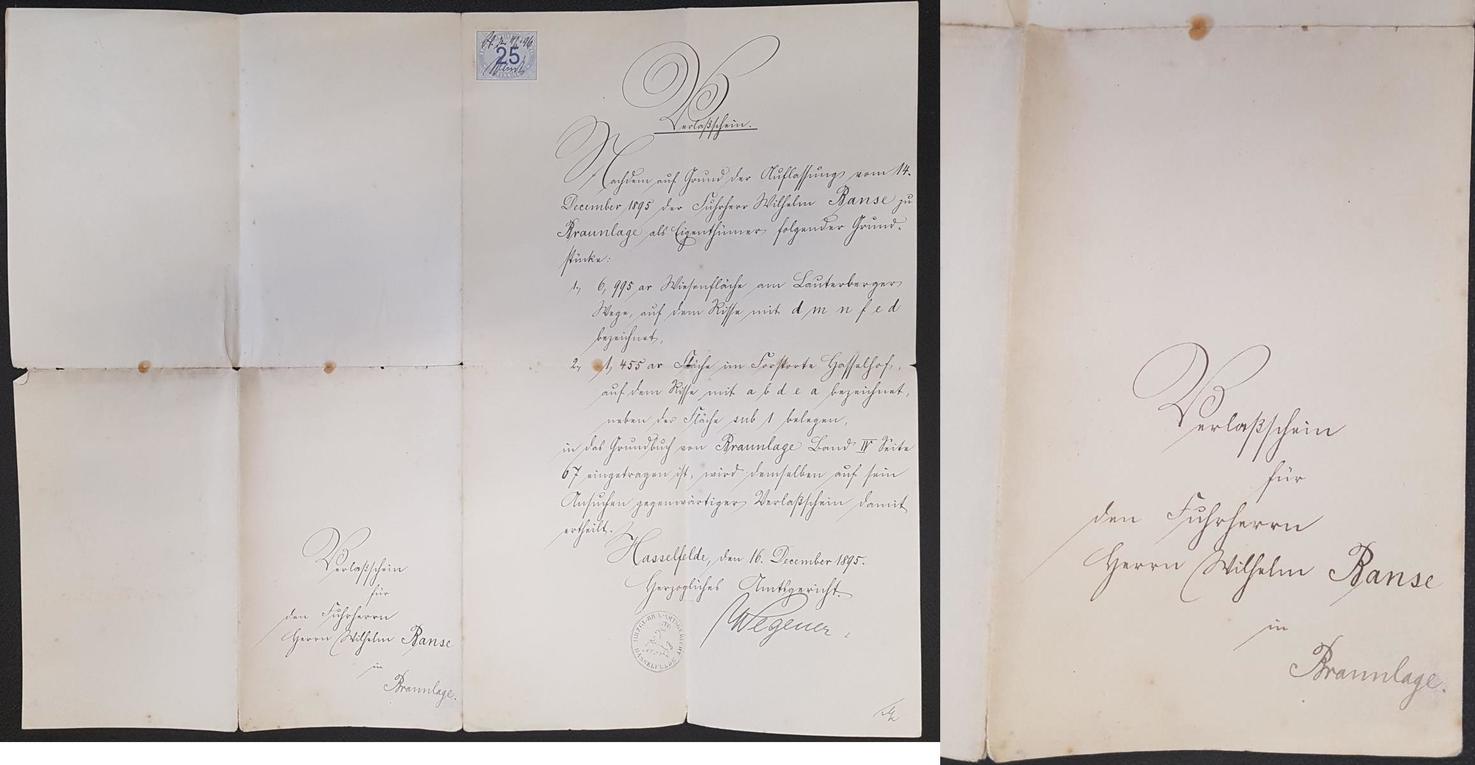 25
Verlaßschein.
Nachdem auf Grund der Auflassung vom 14.
December 1895 der Fuhrherr Wilhelm Banse zu
Braunlage als Eigenthümer folgender Grund-
stücke:
1, 6,995 ar Wiesenfläche am Lauterberger
Wege, auf dem Risse mit d m n f e d
bezeichnet,
2, 1,455 ar Fläche im Forstorte Hasselhof,
auf dem Risse mit a b d e a bezeichnet,
neben der Fläche sub 1 belegen,
in das Grundbuch von Braunlage Band IV Seite
67 eingetragen ist, wird demselben auf sein
Ansuchen gegenwärtiger Verlaßschein damit
ertheilt.
Hasselfelde, den 16. December 1895.
Herzogliches Amtsgericht.
Wegener.
HERZOGL. BR. L. AMTSGERICHT HASSELFELDE
Verlaßschein
für
den Fuhrherrn
Herrn Wilhelm Banse
in
Braunlage.
Verlaßschein
für
den Fuhrherrn
Herrn Wilhelm Banse
in
Braunlage.